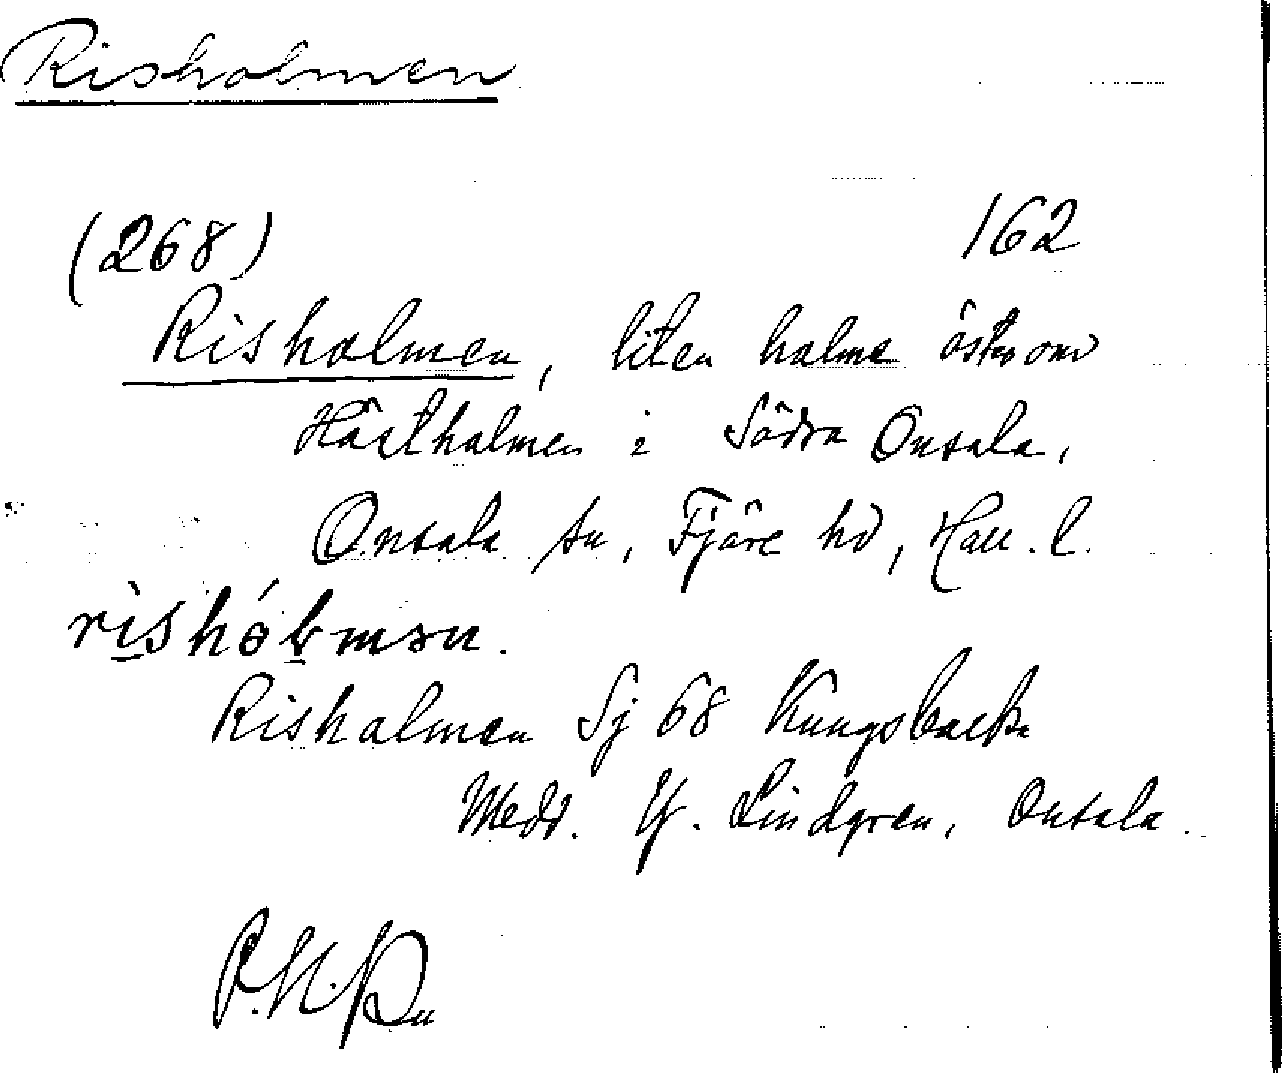 Risholmen
(268) 162
Risholmen, liten holme öster om
Hästholmen i Södra Onsala,
Onsala sn, Fjäre hd, Hall. l.
Risholmen Sj 68 Kungsbacka
Medd. Hj. Lindgren, Onsala.